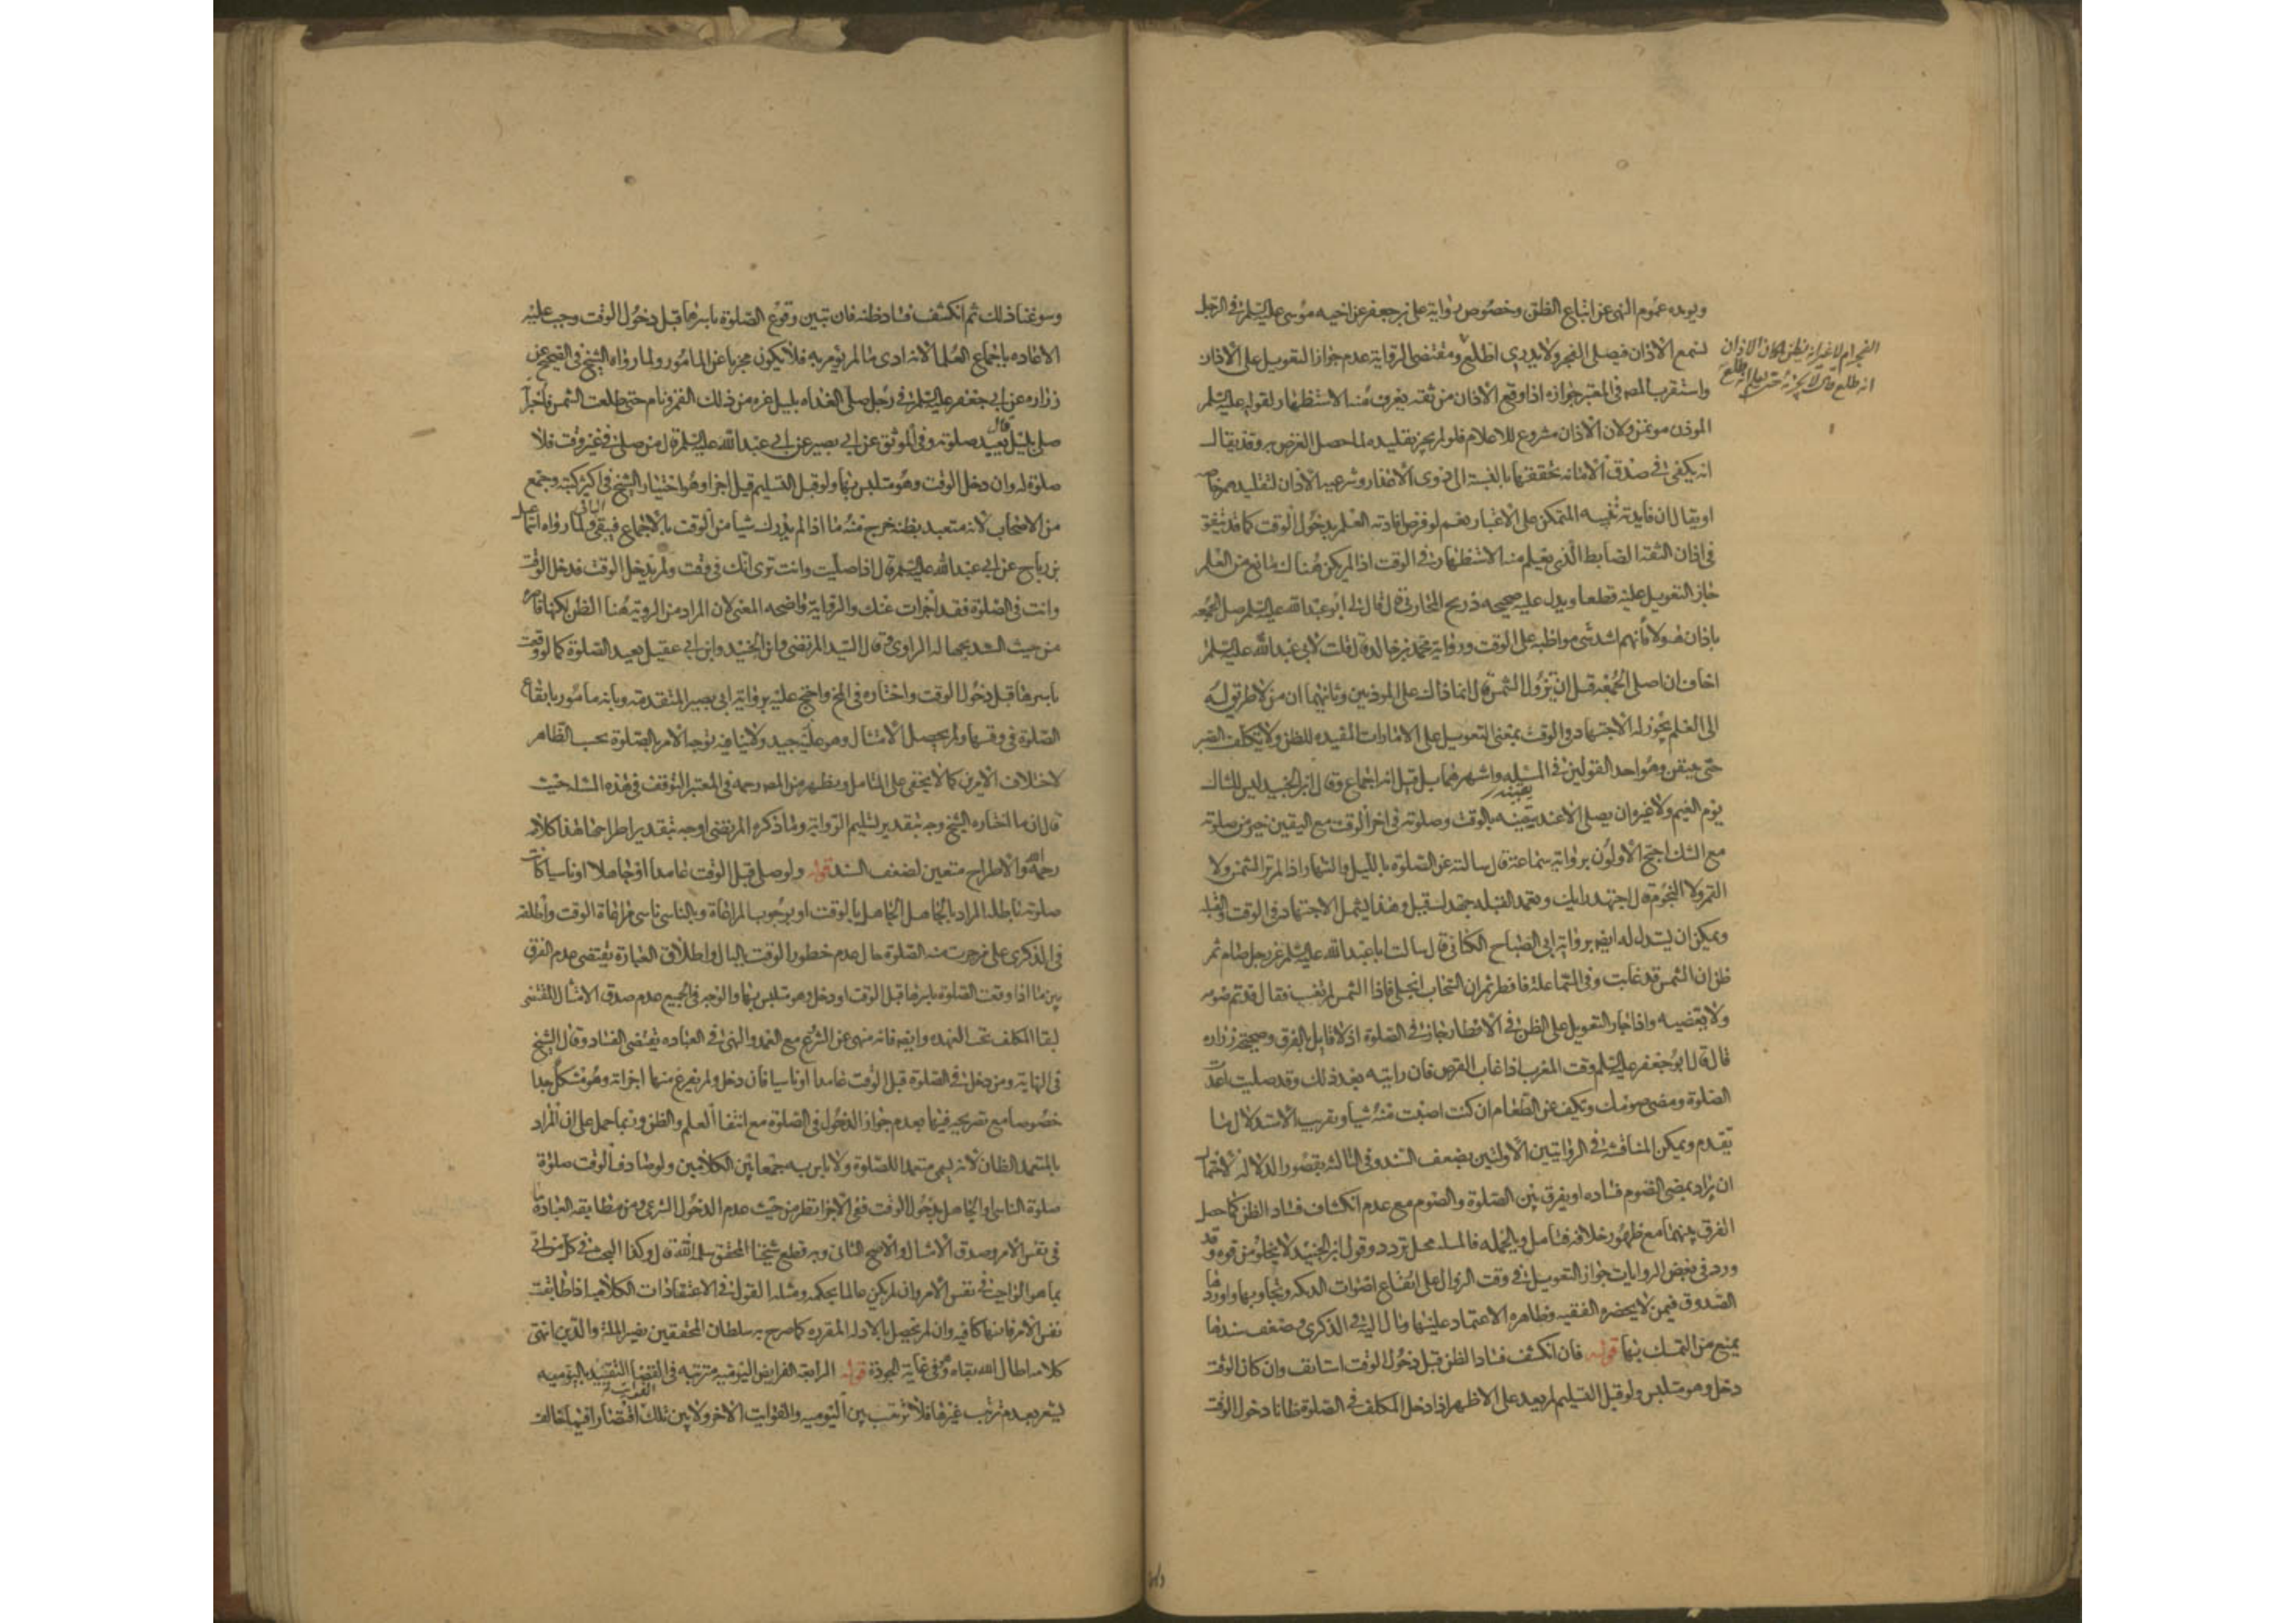 ويؤيده عموم النهى عن اتباع الظن وخصوص رواية على بن جعفر عن اخيه موسى عليه السلم فى الرجل
لسمع الاذان فيصلى الفجر ولا يدرى اطلع ومقتضى الرواية عدم جواز التعويل على الاذان
الفجر ام لا غير انه يظن لمكان الاذان
انه طلع قال لا يجزئه حتى يعلم انه طلع
واستقرب المصـ فى المعتبر جوازه اذا وقع الاذان من ثقة يعرف منه الاستظهار لقوله عليه السلم
الموذن موتمن ولان الاذان مشروع للاعلام فلو لم يجز تقليده لما حصل الغرض به وقد يقال
انه يكفى فى صدق الامانة تحققها بالنسبة الى ذوى الاعذار وشرعية الاذان لتقليدهم خاصه
او يقال ان فايدته تنبيه المتمكن على الاعتبار نعم لو فرض افادته العلم بدخول الوقت كما قد يتفق
فى اذان الثقة الضابط الذى يعلم منه الاستظهار فى الوقت اذا لم يكن هناك مانع من العلم
جاز التعويل عليه قطعا ويدل عليه صحيحه ذريح المحاربى قال قال لى ابو عبد الله عليه السلم صل الجمعه
باذان هولاء فانهم اشد شى مواظبة على الوقت ورواية محمد بن خالد قال قلت لابى عبد الله عليه السلم
اخاف ان اصلى الجمعه قبل ان تزول الشمس قال انما ذاك على الموذنين وثانيهما ان من لا طريق له
الى العلم يجوز له الاجتهاد فى الوقت بمعنى التعويل على الامارات المفيده للظن ولا يتكلف الصبر
حتى يتيقن وهو احد القولين فى المسئله واشهرهما بل قيل انه اجماع وقال ابن الجنيد ليس للشاك
يوم الغيم ولا غيره ان يصلى الا عند تيقنه بالوقت وصلوته فى اخر الوقت مع اليقين خير من صلوته
مع الشك احتج الاولون برواية سماعة قال سالته عن الصلوة بالليل والنهار اذا لم تر الشمس ولا
القمر ولا النجوم قال اجتهد رايك وتعمد القبله جهدك قيل وهذا يشمل الاجتهاد فى الوقت والقبلة
ويمكن ان يستدل له ايضا برواية ابى الصباح الكنانى قال سالت ابا عبد الله عليه السلم عن رجل صام ثم
ظن ان الشمس قد غابت وفى السماء علة فافطر ثم ان السحاب انجلى فاذا الشمس لم تغب فقال قد تم صومه
ولا يقضيه واذا جاز التعويل على الظن فى الافطار جاز فى الصلوة اذ لا قايل بالفرق وصحيحة زراره
قال قال ابو جعفر عليه السلم وقت المغرب اذا غاب القرص فان رايته بعد ذلك وقد صليت اعدت
الصلوة ومضى صومك وتكف عن الطعام ان كنت اصبت منه شيا وتقريب الاستدلال ما
تقدم ويمكن المناقشة فى الروايتين الاولتين بضعف السند وفى الثالثة بقصور الدلالة لاحتمال
ان يراد بمضى الصوم فساده او يفرق بين الصلوة والصوم مع عدم انكشاف فساد الظن كما حصل
الفرق بينهما مع ظهور خلافه فتامل وبالجمله فالمسله محل تردد وقول ابن الجنيد لا يخلو من قوه وقد
ورد فى بعض الروايات جواز التعويل فى وقت الزوال على ارتفاع اصوات الديكه وتجاوبها واوردها
الصدوق فيمن لا يحضره الفقيه وظاهره الاعتماد عليها ومال اليه فى الذكرى وضعف سندها
يمنع من التمسك بها قوله فان انكشف فساد الظن قبل دخول الوقت استانف وان كان الوقت
دخل وهو متلبس ولو قبل التسليم لم يعد على الاظهر اذا دخل المكلف فى الصلوة ظانا دخول الوقت
وسوغنا ذلك ثم انكشف فساد ظنه فان تبين وقوع الصلوة باسرها قبل دخول الوقت وجب عليه
الاعاده باجماع العلما لانه ادى ما لم يؤمر به فلا يكون مجزيا عن المامور ولما رواه الشيخ فى الصحيح عن
زراره عن ابى جعفر عليه السلم فى رجل صلى الغداه بليل غره من ذلك القمر ونام حتى طلعت الشمس فاخبر انه
صلى بليل قال يعيد صلوته وفى الموثق عن ابى بصير عن ابى عبد الله عليه السلم قال من صلى فى غير وقت فلا
صلوة له وان دخل الوقت وهو متلبس بها ولو قبل التسليم قيل اجزا وهو اختيار الشيخ فى اكثر كتبه وجمع
من الاصحاب لانه متعبد بظنه خرج منه ما اذا لم يدرك شيا من الوقت بالاجماع فيبقى الباقى ولما رواه اسمعيل
بن رياح عن ابى عبد الله عليه السلم قال اذا صليت وانت ترى انك فى وقت ولم يدخل الوقت فدخل الوقت
وانت فى الصلوة فقد اجزات عنك والرواية واضحه المعنى لان المراد من الروية هنا الظن لكنها قاصره
من حيث السند بجهالة الراوى وقال السيد المرتضى وابن الجنيد وابن ابى عقيل يعيد الصلوة كما لو وقعت
باسرها قبل دخول الوقت واختاره فى المخ واحتج عليه برواية ابى بصير المتقدمة وبانه مامور بايقاع
الصلوة فى وقتها ولم يحصل الامتثال وهو جيد ولا ينافيه توجه الامر بالصلوة بحسب الظاهر
لاختلاف الامرين كما لا يخفى على المتامل ويظهر من المصـ رحمه فى المعتبر التوقف فى هذه المسئله حيث
قال ان ما اختاره الشيخ وجه بتقدير تسليم الرواية وما ذكره المرتضى اوجه بتقدير اطراحها هذا كلامه
رحمه الله والاطراح متعين لضعف السند قوله ولو صلى قبل الوقت عامدا او جاهلا او ناسيا كانت
صلوته باطلة المراد بالجاهل الجاهل بالوقت او بوجوب المراعاة وبالناسى ناسى مراعاة الوقت واطلقه
فى الذكرى على من جرت منه الصلوة حال عدم خطور الوقت بالبال واطلاق العبارة يقتضى عدم الفرق
بين ما اذا وقعت الصلوة باسرها قبل الوقت او دخل وهو متلبس بها والوجه فى الجميع عدم صدق الامتثال المقتضى
لبقا المكلف تحت العهده وايضا فانه منهى عن الشروع مع العمد والنهى فى العباده يقتضى الفساد وقال الشيخ
فى النهاية ومن دخل فى الصلوة قبل الوقت عامدا او ناسيا فان دخل ولم يفرغ منها اجزاته وهو مشكل جدا
خصوصا مع تصريحه فيها بعدم جواز الدخول فى الصلوة مع انتفا العلم والظن وربما حمل على ان المراد
بالمتعمد الظان لانه يسمى متعمدا للصلوة ولا باس به جمعا بين الكلامين ولو صادف الوقت صلوة
صلوة الناسى او الجاهل بدخول الوقت ففى الاجزا نظر من حيث عدم الدخول الشرعى ومن مطابقه العبادة
فى نفس الامر وصدق الامتثال والاصح الثانى وبه قطع شيخنا المحقق سلمه الله قال وكذا البحث فى كل من اتى
بما هو الواجب فى نفس الامر وان لم يكن عالما بحكمه ومثله القول فى الاعتقادات الكلاميه اذا طابقت
نفس الامر فانها كافيه وان لم تحصل بالادله المقرره كما صرح به سلطان المحققين نصير الملة والدين انتهى
كلامه اطال الله بقاه وفى غاية الجودة قوله الرابعة الفرايض اليوميه مترتبه فى القضا التقييد باليوميه
يشعر بعدم ترتب غيرها فلا ترتب بين اليوميه والفوايت الاخر ولا بين تلك الفوايت اقتصارا فيما خالف